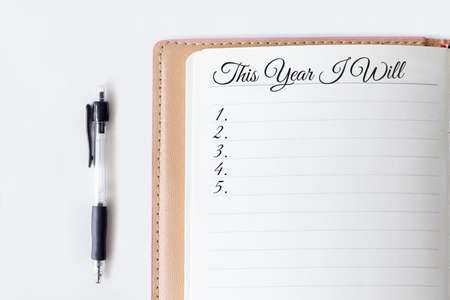 This Year I Will
1.
2.
3.
4.
5.